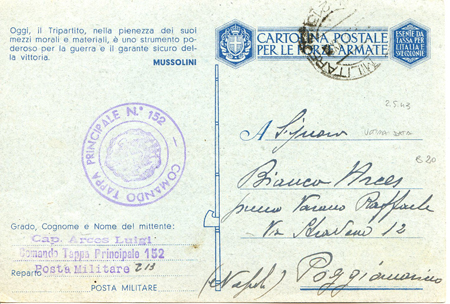 Oggi, il Tripartito, nella pienezza dei suoi
mezzi morali e materiali, è uno strumento po-
deroso per la guerra e il garante sicuro del-
la vittoria.
MUSSOLINI
CARTOLINA POSTALE
PER LE FORZE ARMATE
ESENTE DA
TASSA PER
L'ITALIA E
COLONIE
COMANDO TAPPA PRINCIPALE N.° 152
2.5.43
A Signor
Bianca Arces
presso Varano Raffaele
Via 12
(Napoli) Poggiomarino
Grado, Cognome e Nome del mittente:
Cap. Arces Luigi
Comando Tappa Principale 152
Reparto Posta Militare 213
POSTA MILITARE